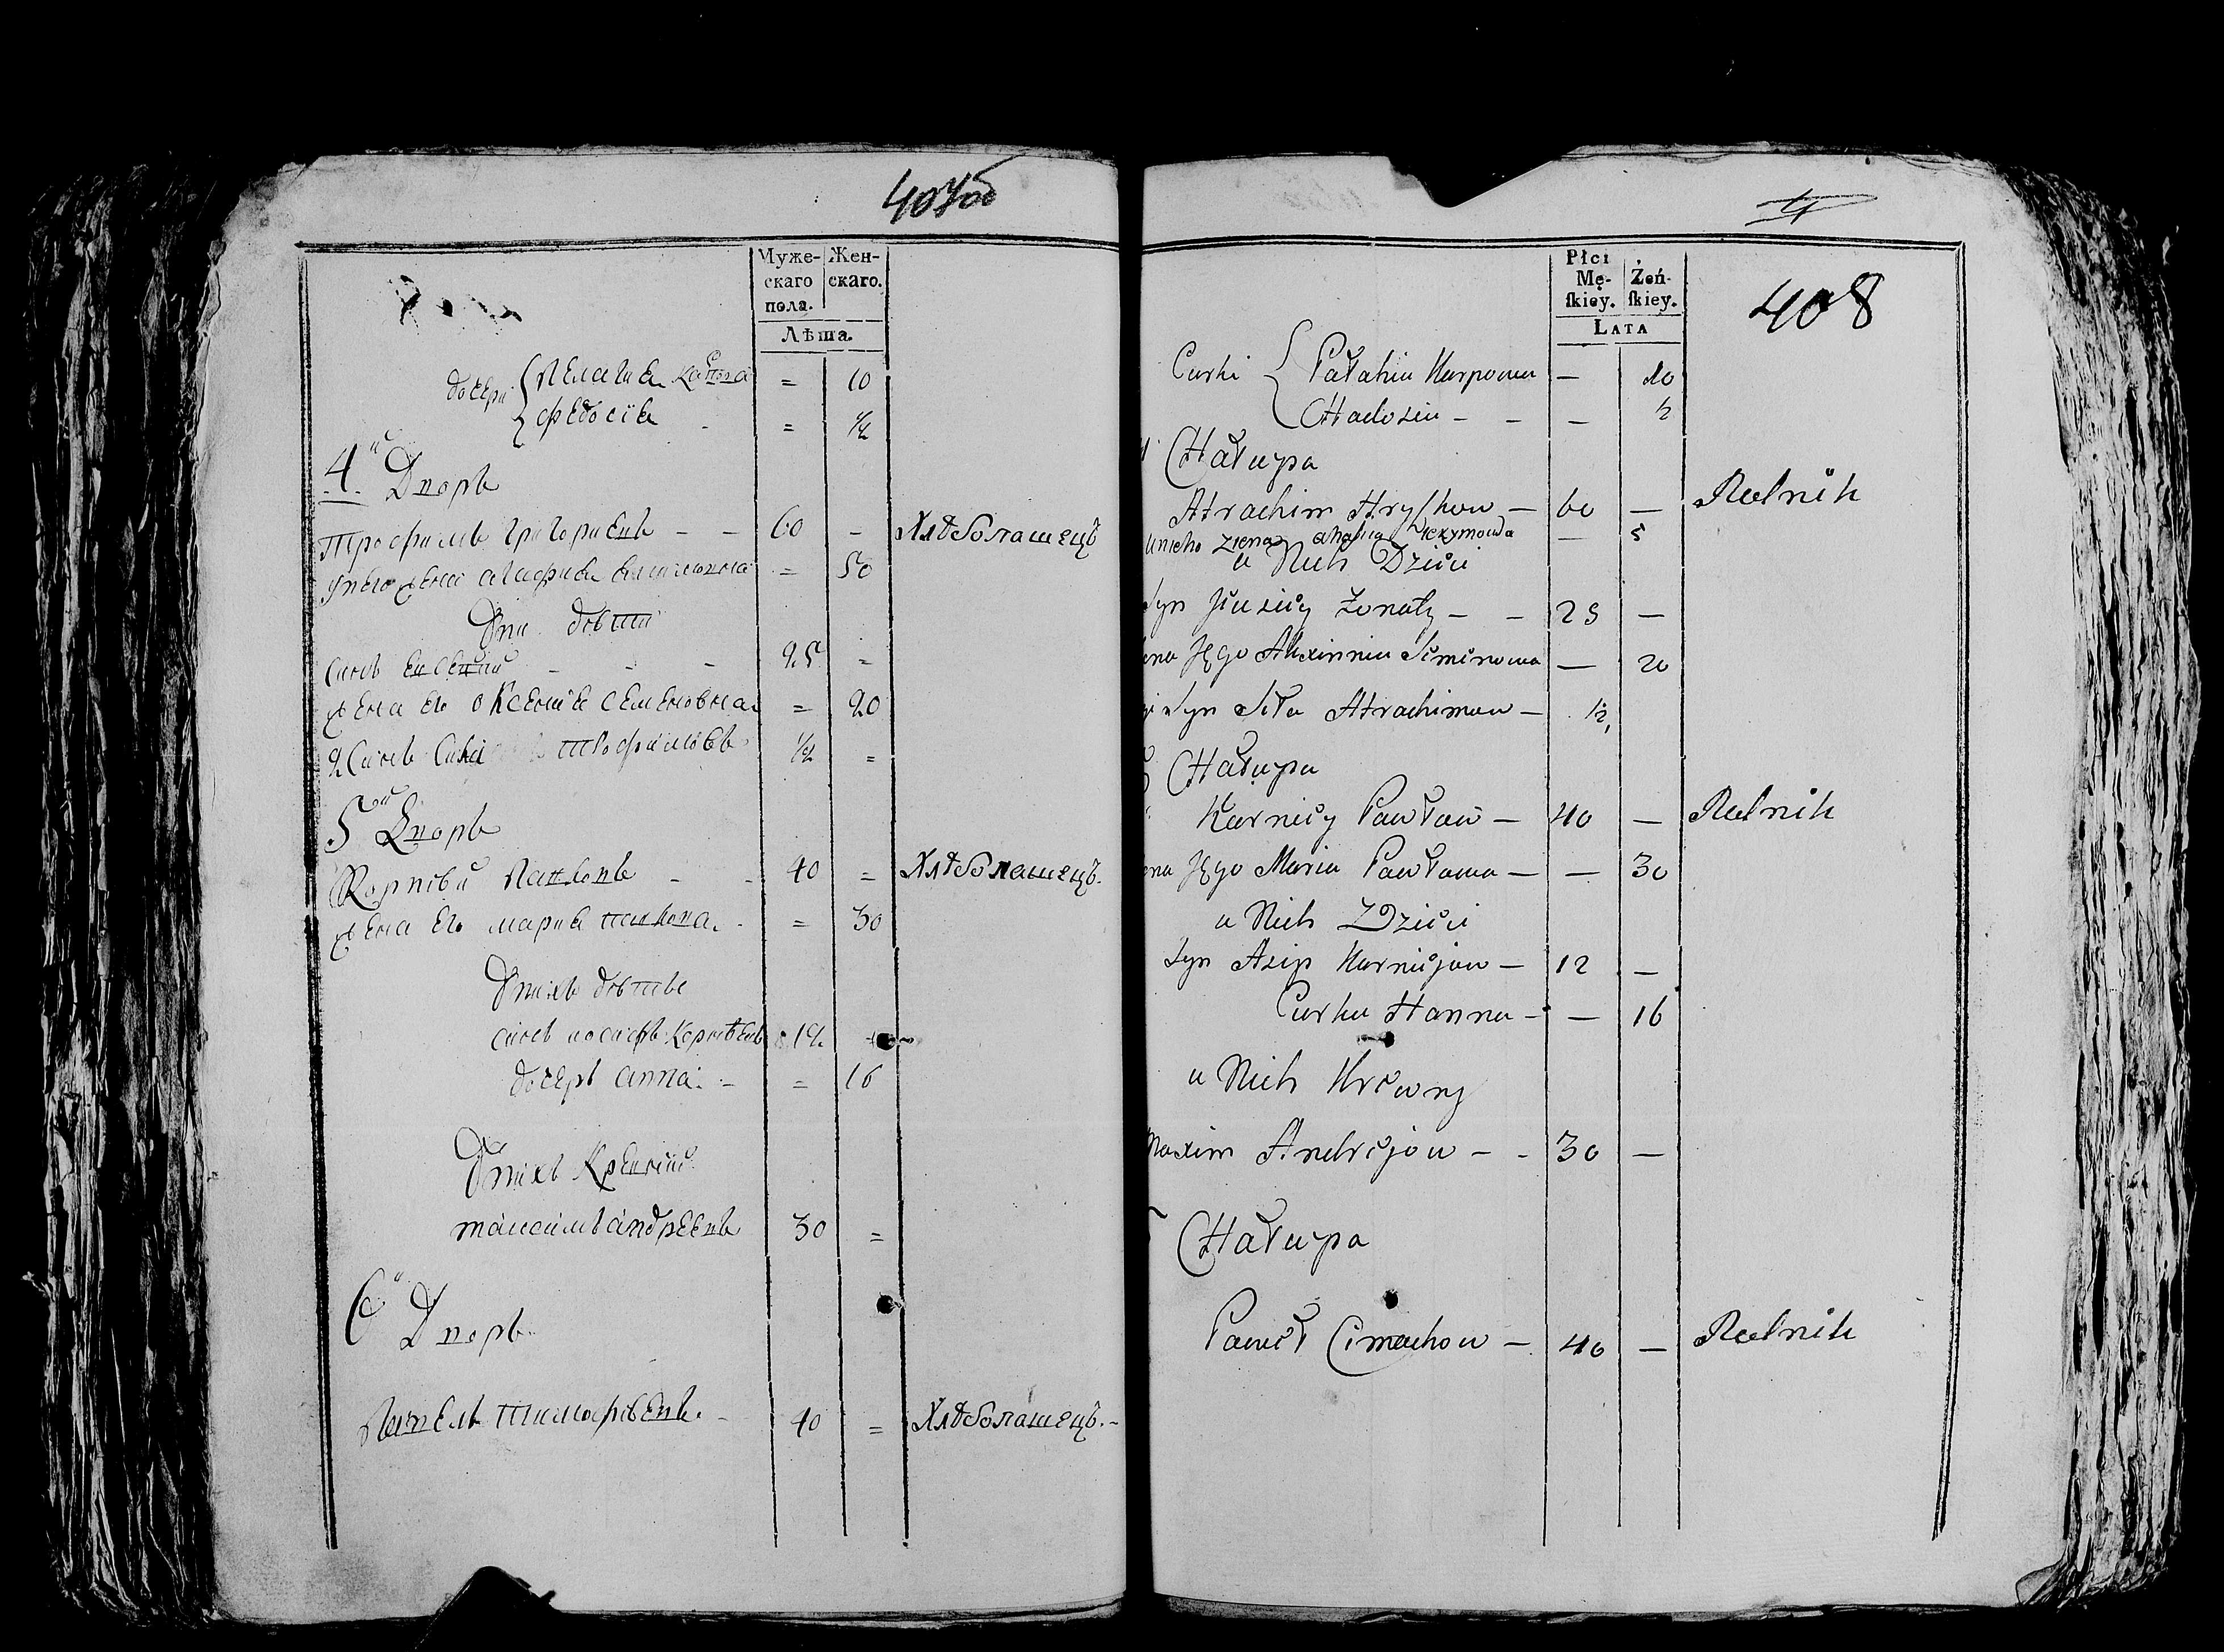 407об
Муже- Жен-
скаго скаго.
пола.
Лѣта.
дочери Пелагия Карпова = 10
Федосія - = 1/2
4й Дворъ
Трофимъ Григориевъ - - 60 - Хлѣбопашецъ
у него жена Агафия = 50
У ни дѣти
сынъ Евсевий - - - 25 =
жена его Оксения Семеновна = 20
сынъ Трофимовъ 1/2 =
5й Дворъ
Корнѣй Павловъ - - 40 = Хлѣбопашецъ.
жена его Мария Павлова. - = 30
У нихъ дѣти
сынъ иосифъ Корнѣевъ 12
дочерь Анна. - = 16
У нихъ Кревний
Максимъ Андреевъ 30 =
6й Дворъ
Павелъ Тимофѣевъ. - 40 = Хлѣбопашецъ. -
408
Płci
Mę- Żeń-
ſkiey. ſkiey.
LATA
Curki Pałahia Karpowa — 10
Chadosia - - — ½
Chałupa
Atrachim Hryſkow — 60 — Rolnik
u nieho Ziena — 5
u Nich Dzieci
Syn Jeusiey Żonaty — - 25 —
ena Jego Axinnia Simonowa — 20
Syn Siła Atrachimow — ½
Chałupa
Karniey Pawłow — 40 — Rolnik
ena Jego Maria Pawłowa — — 30
u Nich Dzieci
Syn Asip Karniejow — 12 —
Curka Hanna - — 16
u Nich Krewny
Maxim Andrejow - - 30 —
Chałupa
Paweł Cimachow — 40 — Rolnik